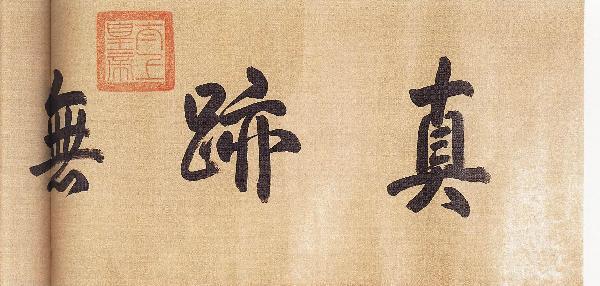 真跡無
太上皇帝